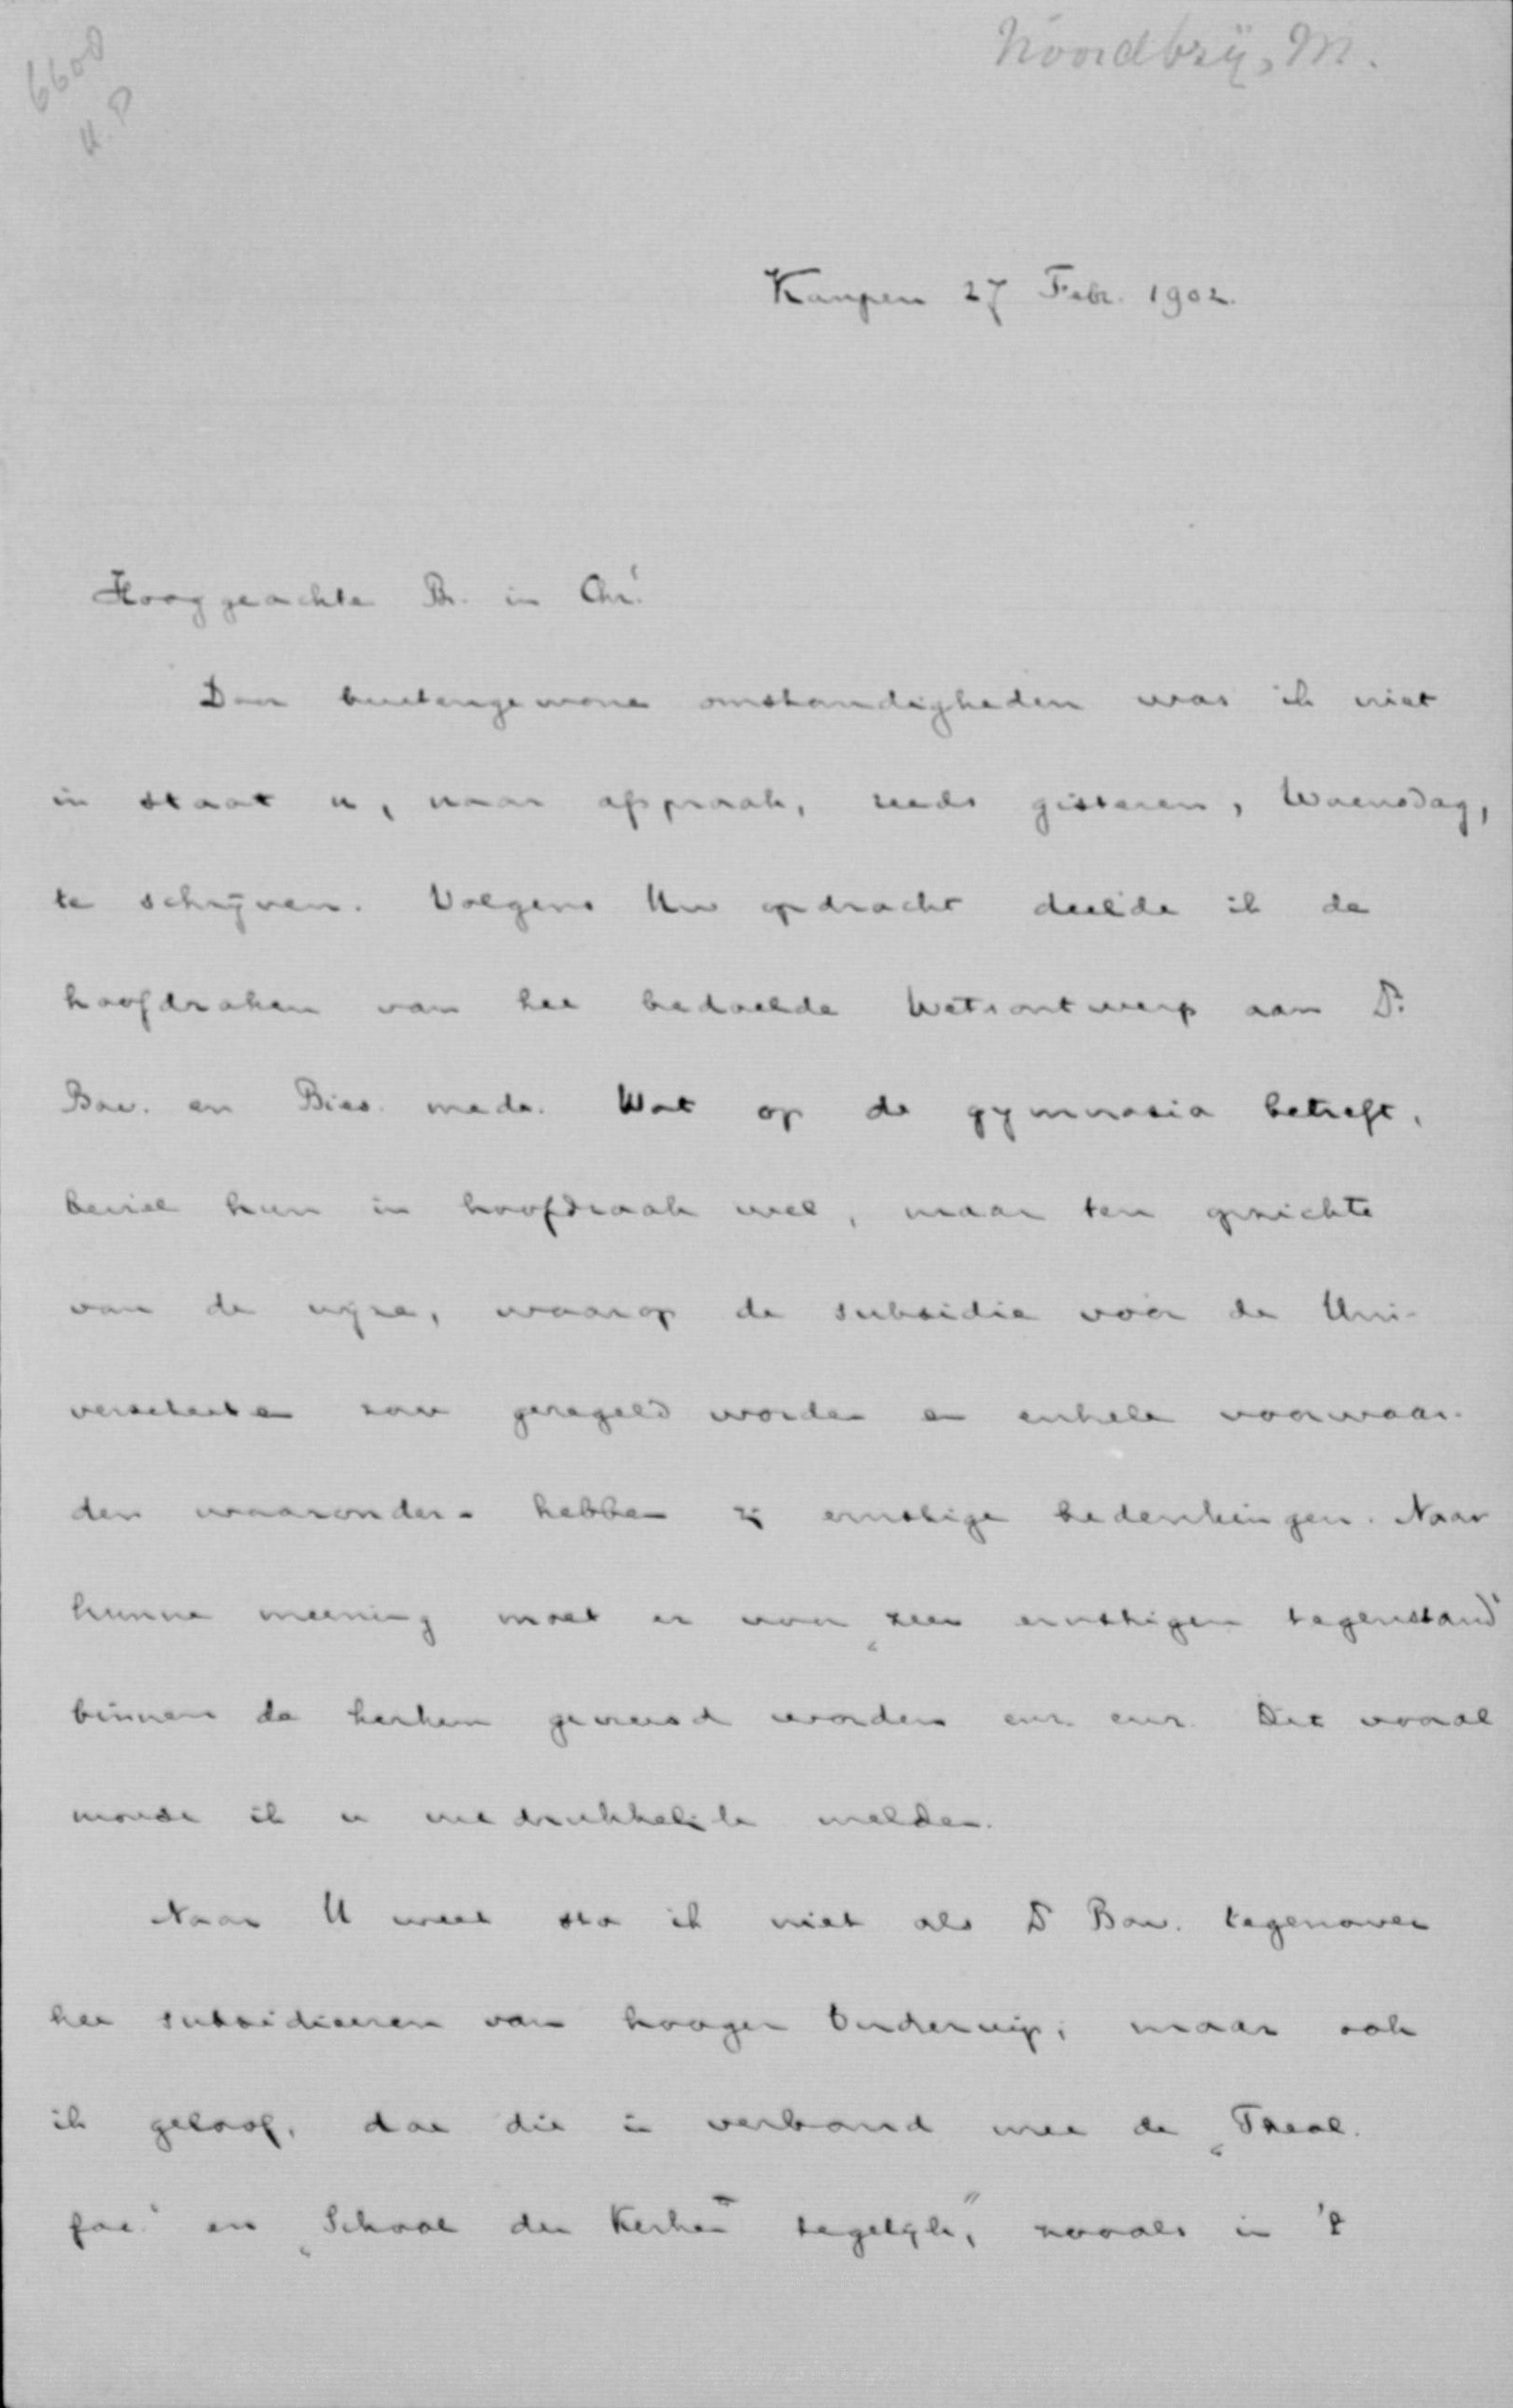 6600
K.P
Noordtzij, M.
Kampen 27 Febr. 1902.
Hooggeachte Br. in Chr.!
Door buitengewone omstandigheden was ik niet
in staat u, naar afspraak, reeds gisteren, Woensdag,
te schrijven. Volgens Uw opdracht deelde ik de
hoofdzaken van het bedoelde Wetsontwerp aan Dr.
Bav. en Bies. mede. Wat op de gymnasia betreft,
beviel hun in hoofdzaak wel, maar ten gezichte
van de wijze, waarop de subsidie voor de Uni-
versiteiten zou geregeld worden en enkele voorwaar-
den waaronder - hebben zij ernstige bedenkingen. Naar
hunne meening moet er voor „zeer ernstigen tegenstand"
binnen de kerken gevreesd worden enz. enz. Dit vooral
moest ik u uitdrukkelijk melden.
Naar U weet sta ik niet als Dr Bav. tegenover
het subsidieeren van hooger Onderwijs; maar ook
ik geloof, dat die in verband met de „Theol.
fac." en „School der Kerken" tegelijk," zooals in 't